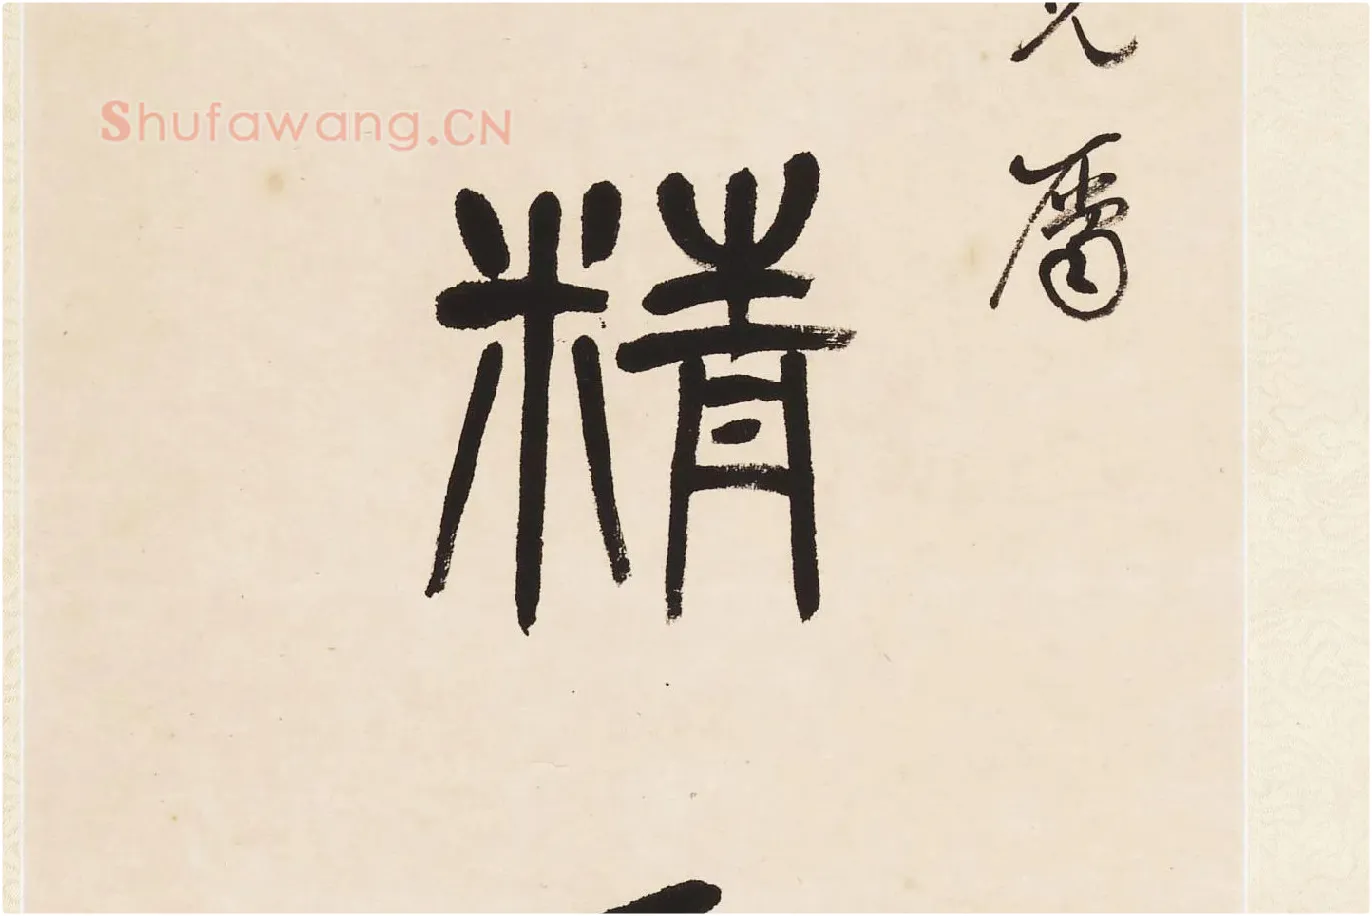 Shufawang.CN
属
精